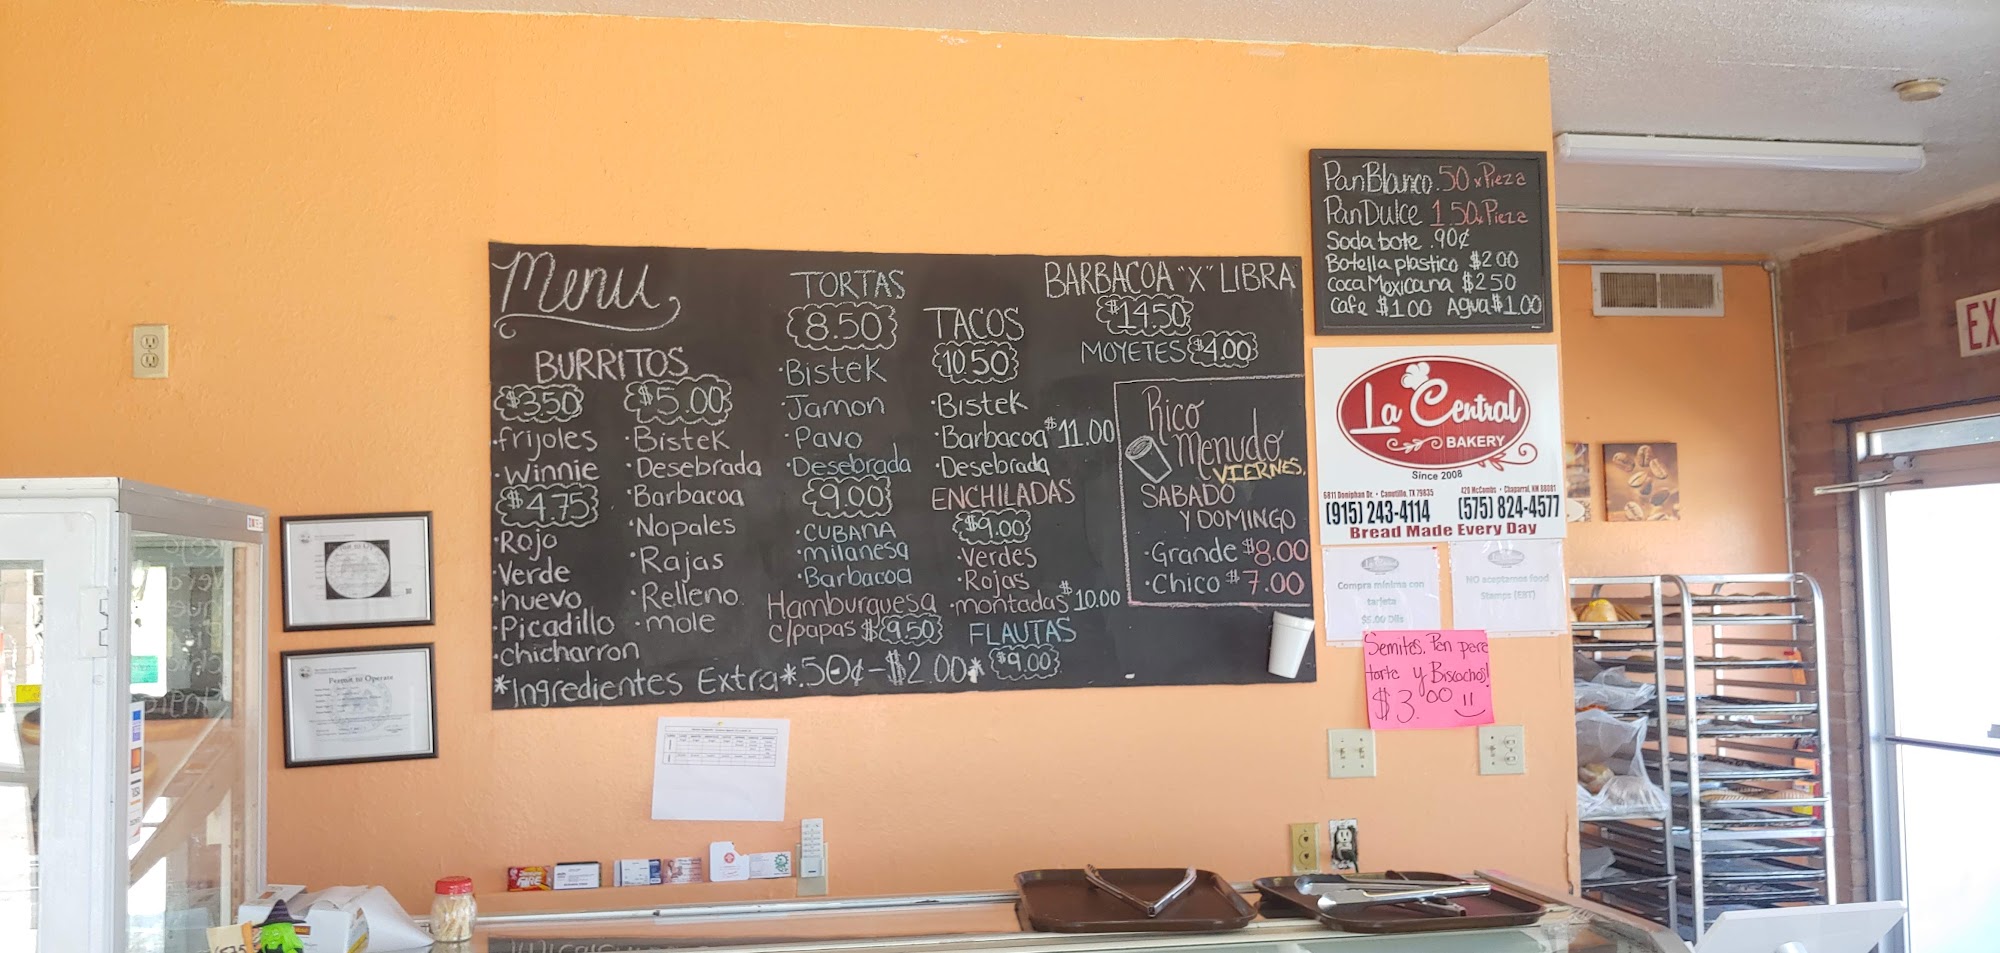 Menu
BURRITOS
$3.50
·frijoles
·Winnie
$4.75
·Rojo
·Verde
·huevo
·Picadillo
·chicharron
$5.00
·Bistek
·Desebrada
·Barbacoa
·Nopales
·Rajas
·Relleno
·mole
TORTAS
8.50
·Bistek
·Jamon
·Pavo
·Desebrada
9.00
·CUBANA
·milanesa
·Barbacoa
Hamburguesa
c/papas $9.50
TACOS
10.50
·Bistek
·Barbacoa $11.00
·Desebrada
ENCHILADAS
$9.00
·Verdes
·Rojas
·montadas $10.00
FLAUTAS
$9.00
BARBACOA "X" LIBRA
$14.50
MOYETES $4.00
Rico
Menudo
VIERNES,
SABADO
Y DOMINGO
·Grande $8.00
·Chico $7.00
*Ingredientes Extra*.50¢-$2.00*
Pan Blanco .50 x Pieza
Pan Dulce 1.50 x Pieza
Soda bote .90¢
Botella plastico $2.00
Coca Mexicana $2.50
Cafe $1.00 Agua $1.00
La Central
BAKERY
Since 2008
6811 Doniphan Dr. • Canutillo, TX 79835
(915) 243-4114
420 McCombs • Chaparral, NM 88081
(575) 824-4577
Bread Made Every Day
Compra mínima con
tarjeta
$5.00 Dlls
NO aceptamos food
Stamps (EBT)
Semitas, Pan para
torta y Biscochos!
$3.00
EX
Permit to Operate